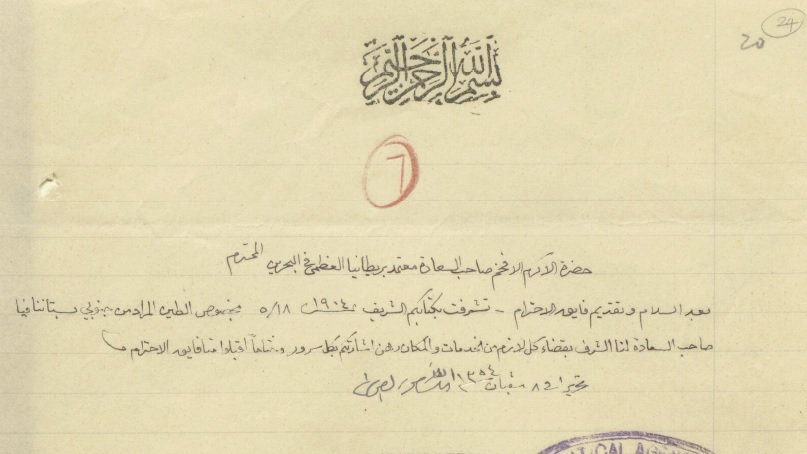 24
20
بسم الله الرحمن الرحيم
7
حضرة الاكرم الافخم صاحب السعادة معتمد بريطانيا العظمى في البحرين المحترم
بعد السلام وتقديم فايق الاحترام - تشرفت بكتابكم الشريف ١٨/٥ بخصوص الطين المراد من جنوبي
صاحب السعادة لنا الشرف بقضاء كل لازم من الخدمات والمكان رهن اشارتكم بكل سرور وختاماً اقبلوا منا فايق الاحترام
٨ ١٣٥٤